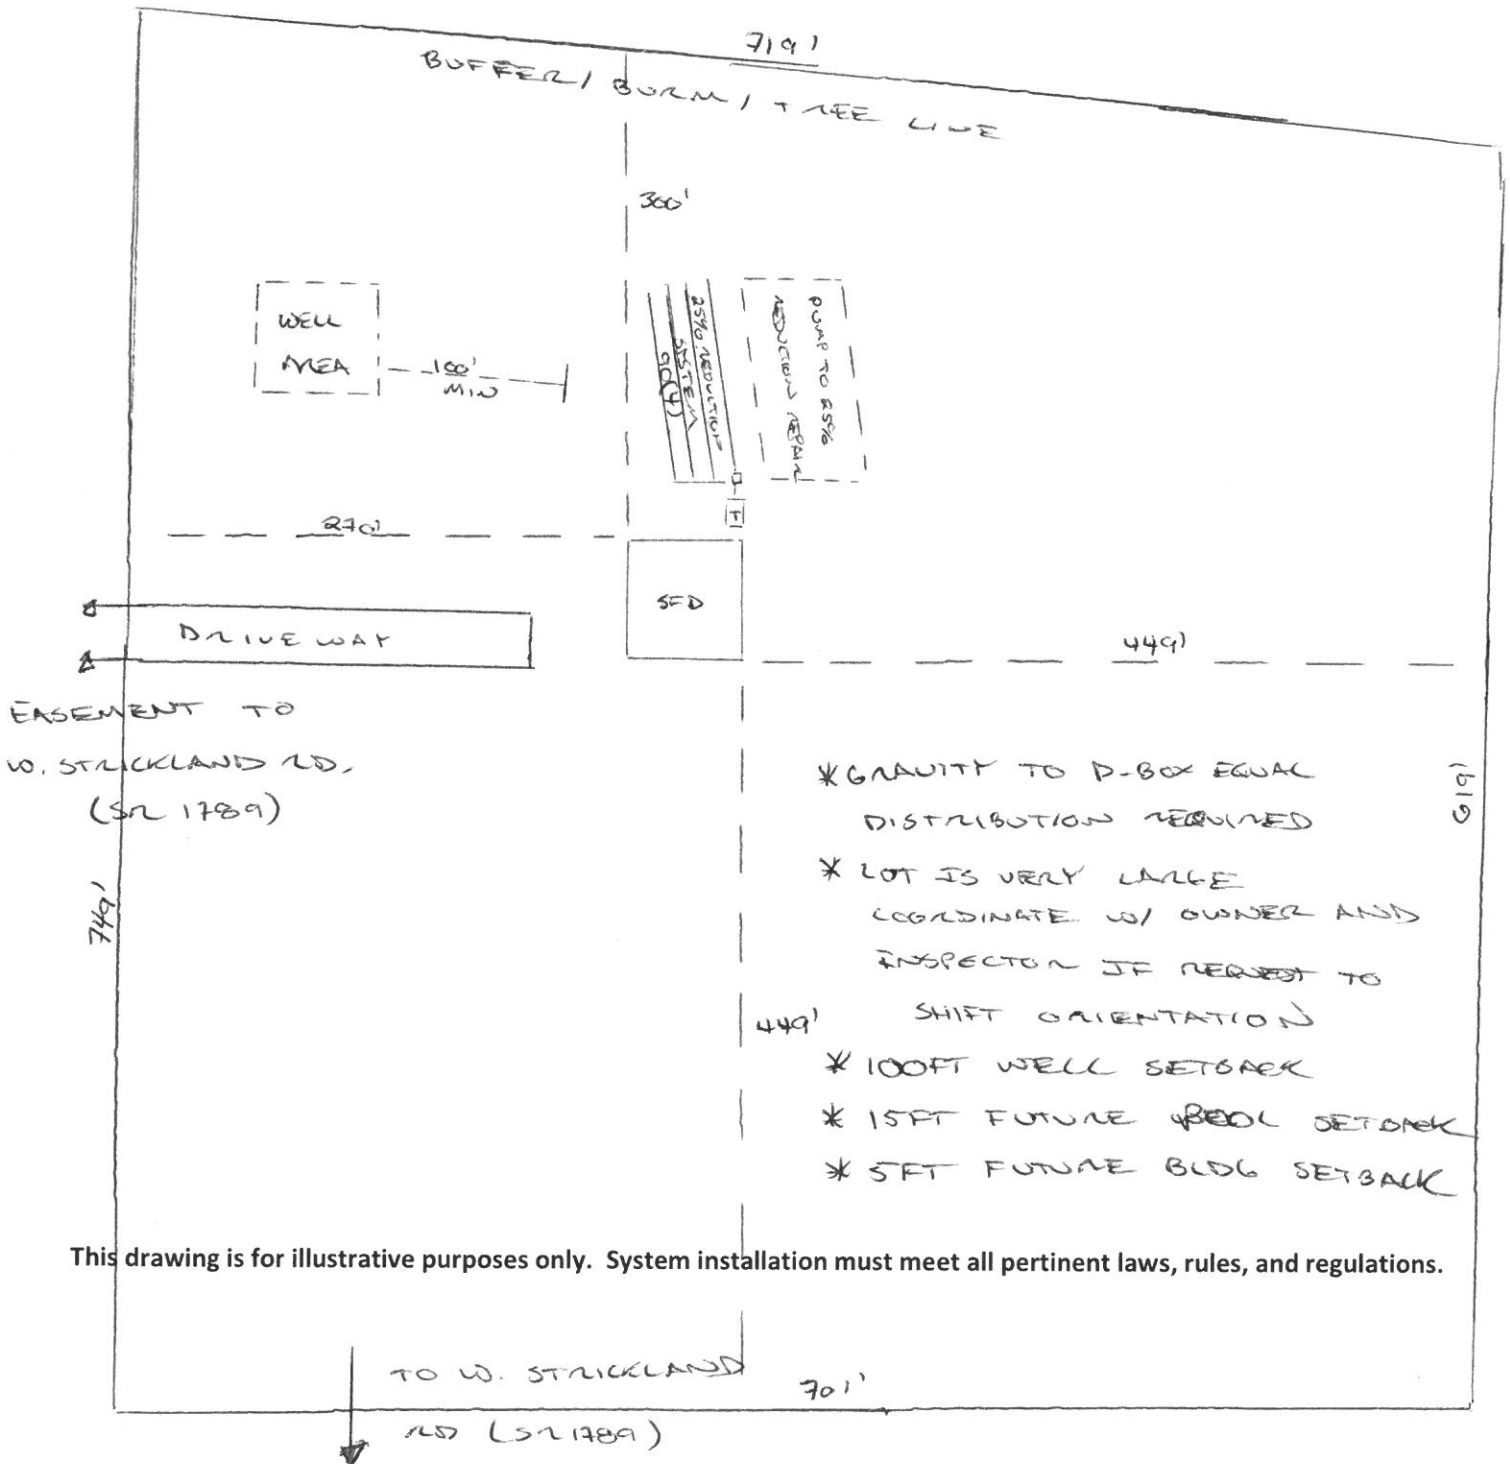 719'
BUFFER / BURM / TREE LINE
300'
WELL
AREA
100'
MIN
25% REDUCTION
SYSTEM
90(4)
PUMP TO 25%
REDUCTION REPAIR
270'
T
SFD
DRIVEWAY
449'
EASEMENT TO
W. STRICKLAND RD.
(SR 1789)
* GRAVITY TO D-BOX EQUAL
DISTRIBUTION REQUIRED
* LOT IS VERY LARGE
COORDINATE W/ OWNER AND
INSPECTOR IF REQUEST TO
SHIFT ORIENTATION
619'
749'
449'
* 100FT WELL SETBACK
* 15FT FUTURE POOL SETBACK
* 5FT FUTURE BLDG SETBACK
This drawing is for illustrative purposes only. System installation must meet all pertinent laws, rules, and regulations.
TO W. STRICKLAND
RD (SR 1789)
701'